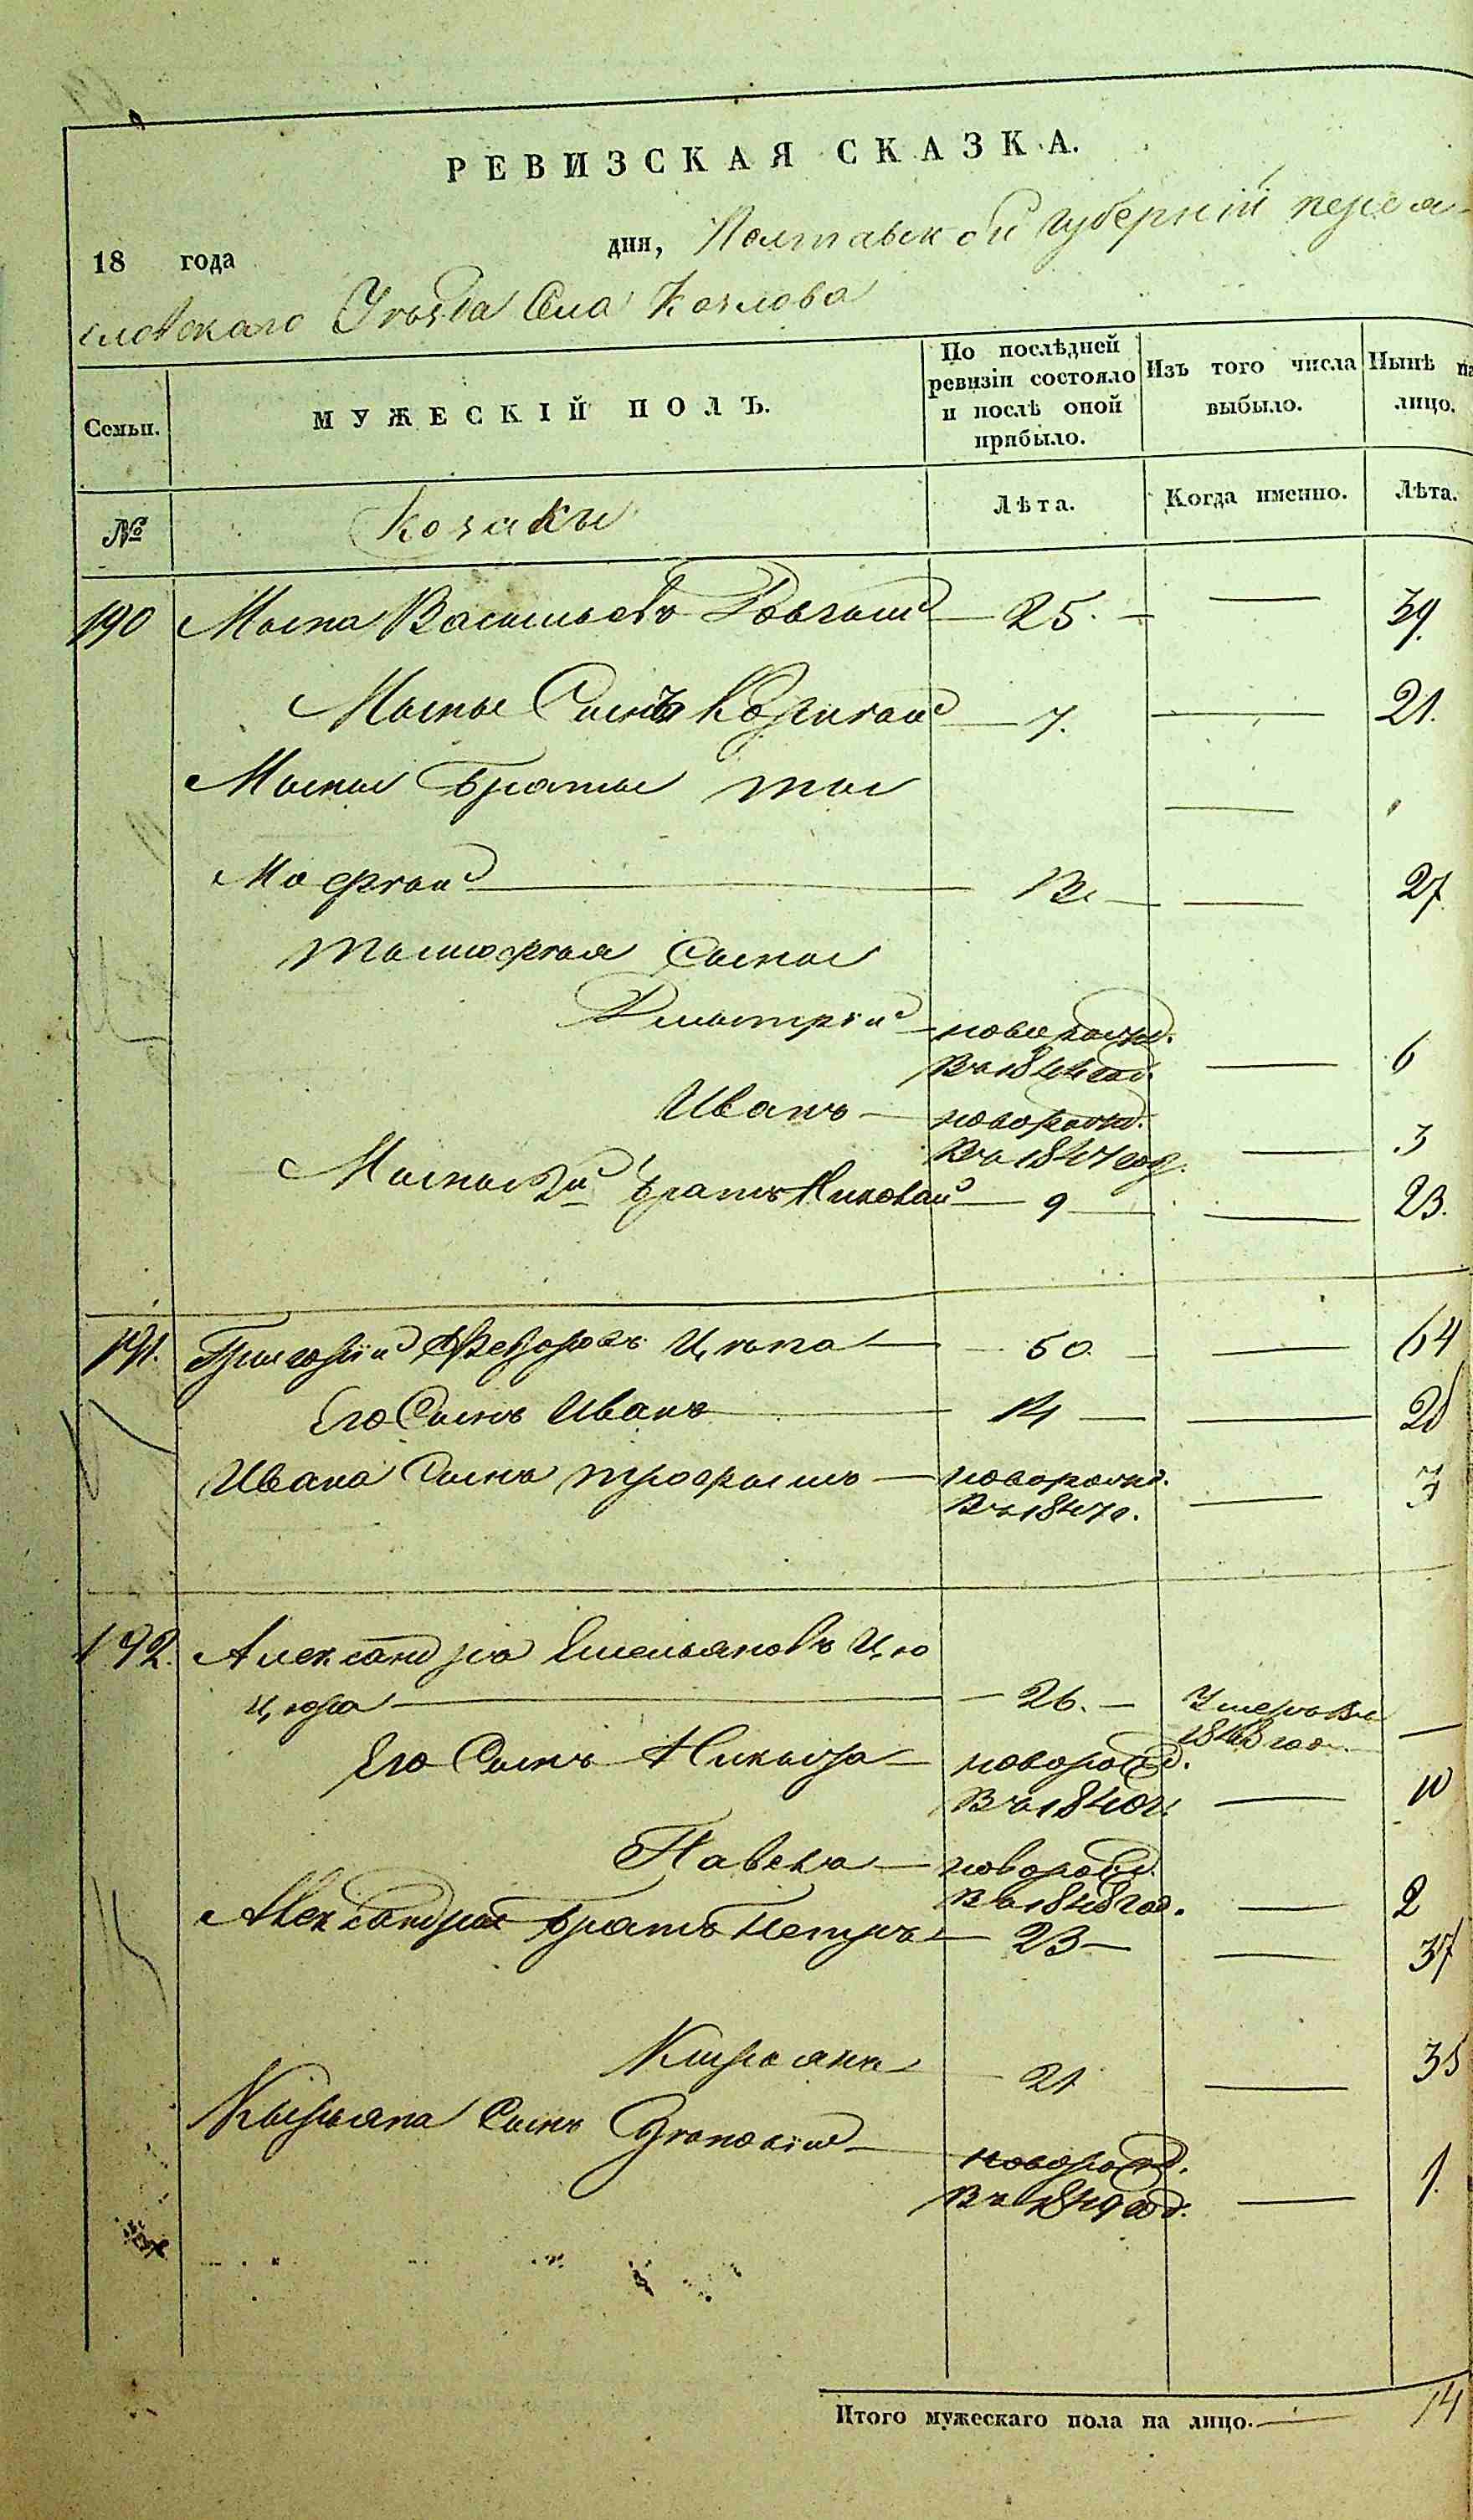 РЕВИЗСКАЯ СКАЗКА.
18 года дня, Полтавской губерніи перея-
словскаго Уѣзда Села Козлова
Семьи. МУЖЕСКІЙ ПОЛЪ. По послѣдней ревизіи состояло и послѣ оной прибыло. Изъ того числа выбыло. Нынѣ на лицо.
№ Козаки Лѣта. Когда именно. Лѣта.
190 Мына Васильевъ Довгий 25. 39.
Мыны Сынъ 7. 21.
Мыны братья
12 27
Сыны
Дмытрій новорожд. 6
въ 1844 год.
Иванъ новорожд. 3
въ 1847 год.
Мыны 3й братъ Николай 9 23.
191. Григорій Федоровъ Цѣпа 50. 64
Его Сынъ Иванъ 14 28
Ивана Сынъ Трофымъ новорожд. 3
въ 1847 г.
192. Александръ Емельяновъ Цю
цюра 26. Умеръ въ
1848 год.
Его Сынъ Никыфоръ новорожд. 10
въ 1840 г.
Павелъ новорожд.
въ 1848 год. 2
Александра братъ Петръ 23 37
Кирыянъ 21 35
Кырыяна Сынъ новорожд. 1.
въ 1849 год.
Итого мужескаго пола на лицо. 14